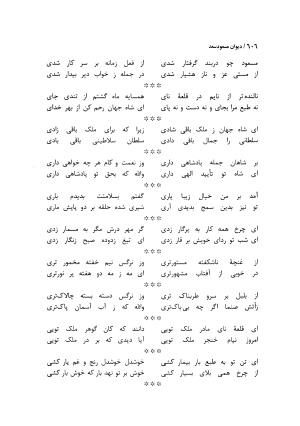 ۶۰۶ / دیوان مسعودسعد
مسعود چو دربند گرفتار شدی از فعل زمانه بر سر کار شدی
از مستی عز و ناز هشیار شدی در جمله ز خواب دیر بیدار شدی
***
نالنده‌تر از نایم در قلعهٔ نای همسایه ماه گشتم از تندی جای
نه طبع مرا بجای و نه دست و نه پای ای شاه جهان رحم کن از بهر خدای
***
ای شاه جهان ز ملک باقی شادی زیرا که برای ملک باقی زادی
سلطانی را جمال باقی دادی سلطان سلاطینی باقی بادی
***
بر شاهان جمله پادشاهی داری وز نعمت و کام هر چه خواهی داری
ای شاه تو تأیید الهی داری والله که بحق تو پادشاهی داری
***
آمد بر من خیال زیبا یاری گفتم بسلامتت بدیدم باری
تو نیز بدین سمج پدیدی آری شیری شده حلقه بر دو پایش ماری
***
ای چرخ همه کار به پرگار زدی گر مهر درش مگر به مسمار زدی
ای شب تو ردای خویش بر قار زدی ای تیغ زدوده صبح زنگار زدی
***
از غنچهٔ ناشکفته مستورتری وز نرگس نیم خفته مخمور تری
در خوبی از آفتاب مشهورتری ای مه ز مه دو هفته پر نورتری
***
از بلبل بر سرو طربناک تری وز نرگس دسته بسته چالاک‌تری
زآتش صنما اگر چه بی‌باک‌تری والله که ز آب آسمان پاک‌تری
***
ای قلعهٔ نای مادر ملک تویی دانند که کان گوهر ملک تویی
امروز نیام خنجر ملک تویی آیا دیدی که بر در ملک تویی
***
ای تن تو به طبع بار بیمار کشی خوشدل خوشدل رنج و غم یار کشی
از چرخ همی بلای بسیار کشی خوش بر تو نهد بار که خوش بار کشی
***